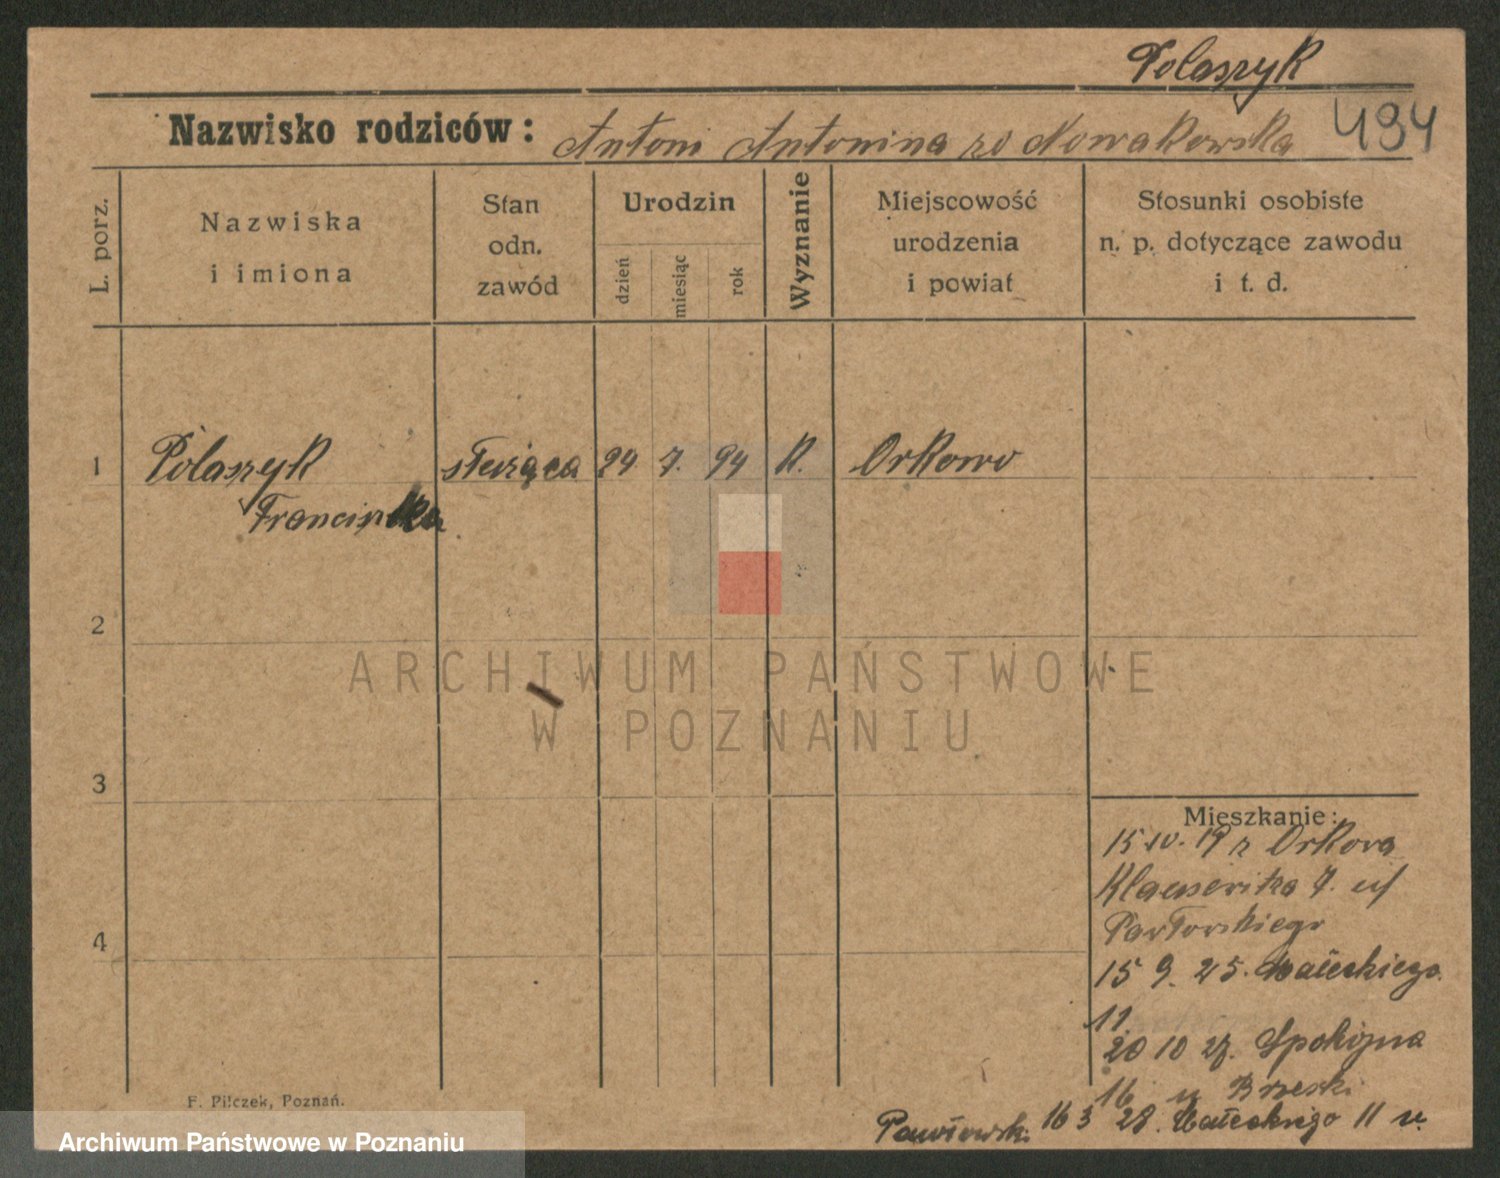 Polaszyk
Nazwisko rodziców: Antoni Antonina zd Nowakowska
494
L. porz.
Nazwiska
i imiona
Stan
odn.
zawód
Urodzin
dzień
miesiąc
rok
Wyznanie
Miejscowość
urodzenia
i powiat
Stosunki osobiste
n. p. dotyczące zawodu
i t. d.
1 Polaszyk służąca 24 7. 94 K. Orkowo
Franciszka
2
3
4
ARCHIWUM PAŃSTWOWE
W POZNANIU
Mieszkanie:
15 IV. 19 z Orkova
7.
15 9. 25. Małeckiego
11.
20 10 27. Spokojna
16 u Brzeski
16 3 28. Małeckiego 11 u.
F. Pilczek, Poznań.
Archiwum Państwowe w Poznaniu